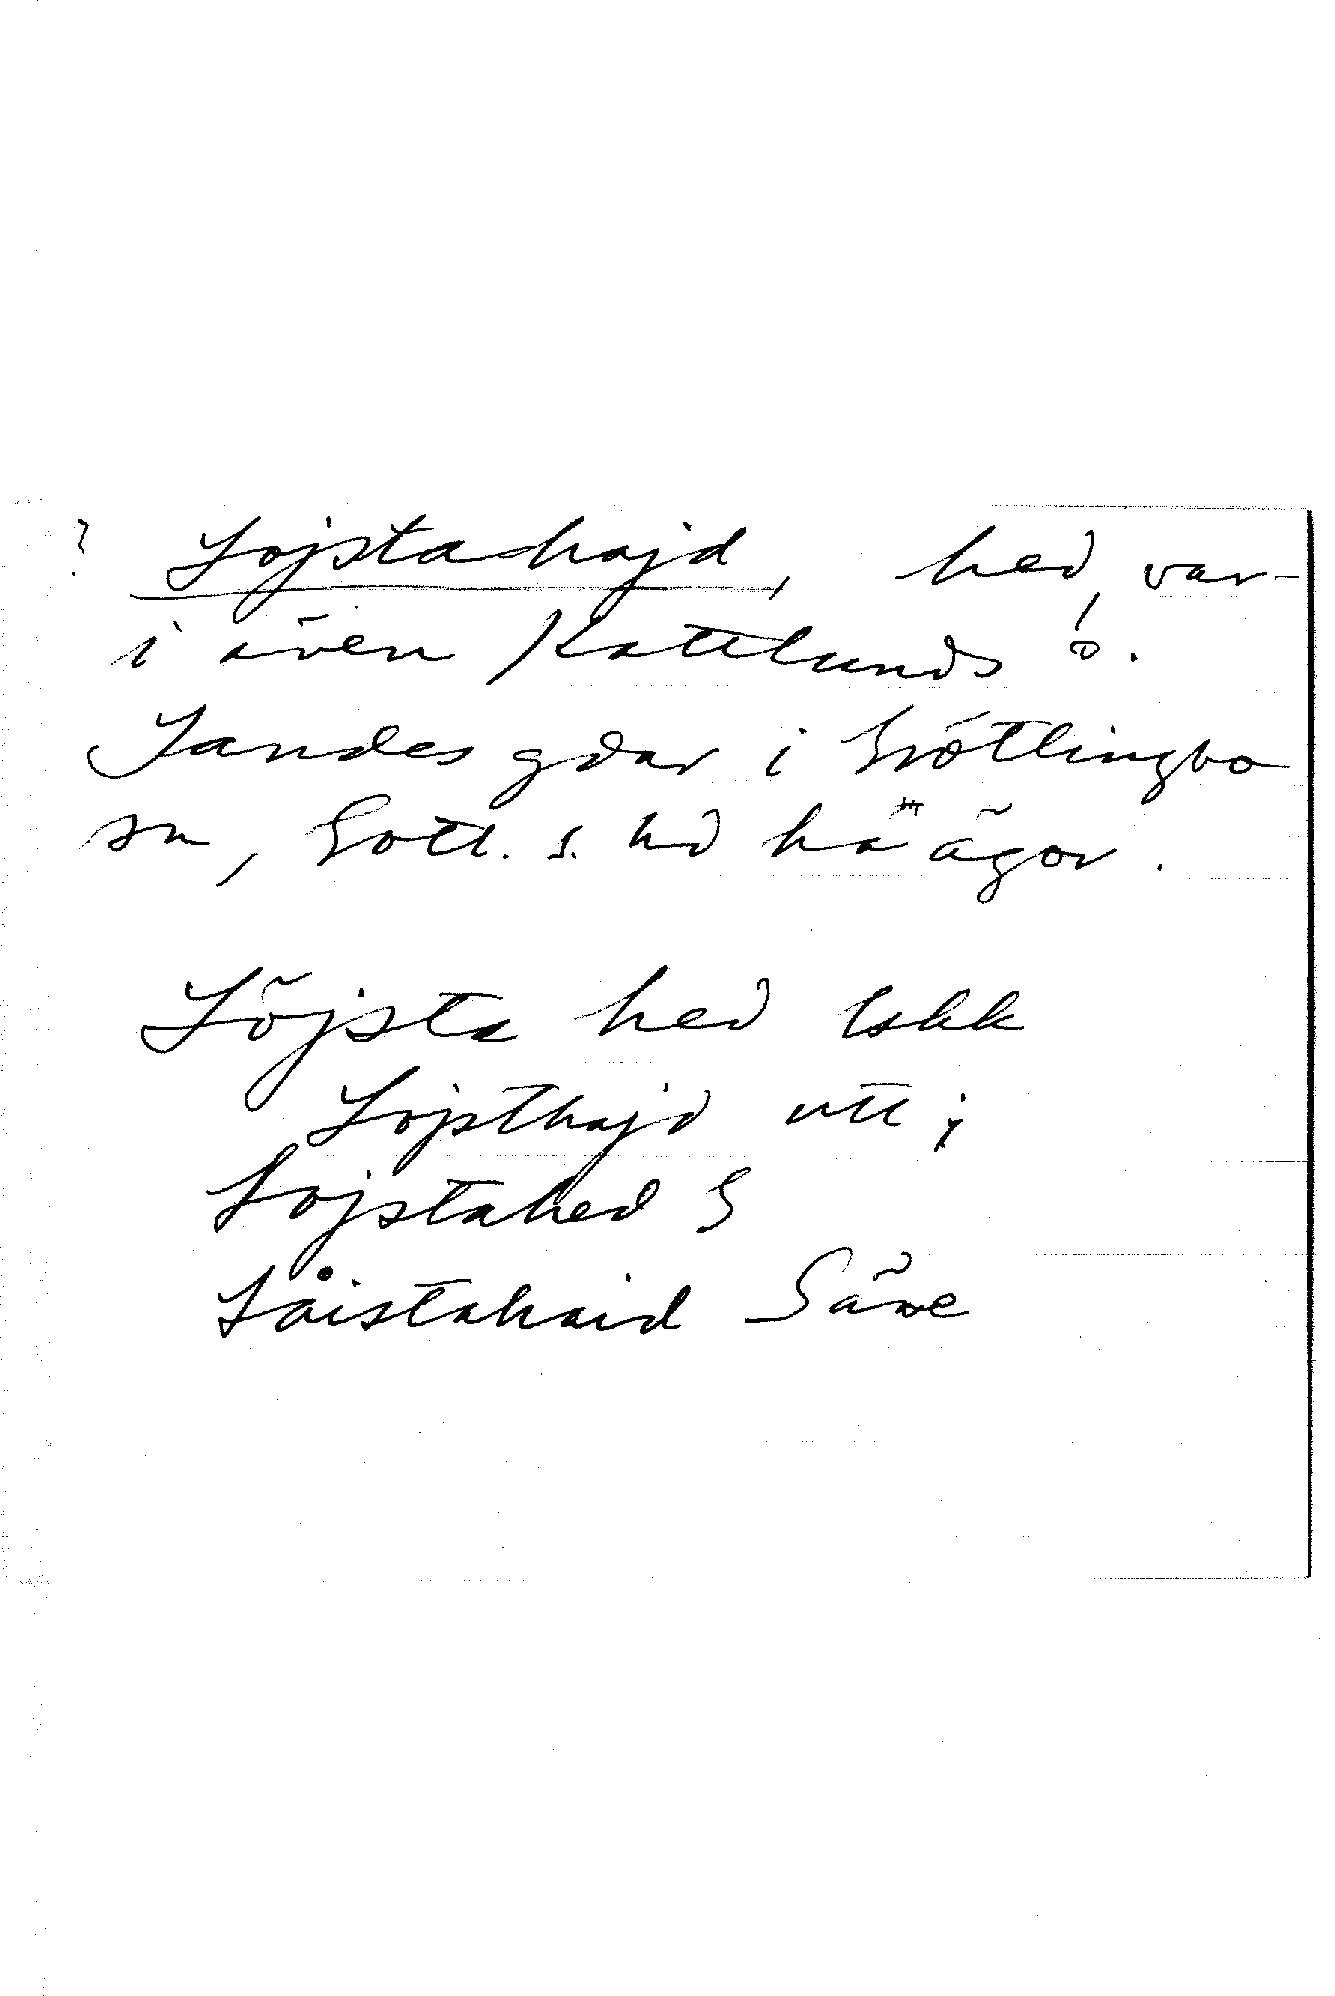 ? Lojstahajd, hed, var-
i även Kattlunds o.
Sandes gdar i Grötlingbo
sn, Gotl. s. hd ha ägor.
Löjsta hed Iskk
Lojsthajd utt;
Lojstahed G
Låistahaid Säve